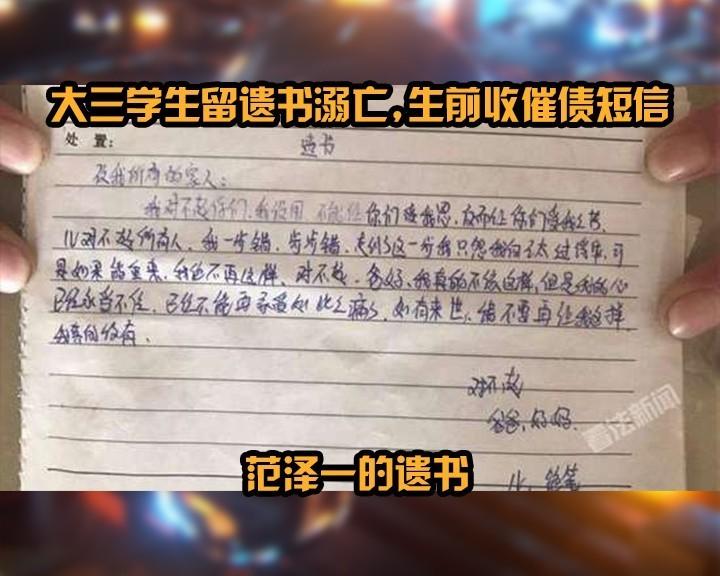 大三学生留遗书溺亡,生前收催债短信
处 置: 遗书
我所有的家人:
我对不起你们,我没用,不能让你们受我恩,反而让你们受我之苦.
儿对不起所有人,我一步错,步步错,走到了这一步我只怨我自己太过,可
是如果能重来,我绝不再这样,对不起,爸妈,我真的不该这样,但是我的心
已经承当不住,已经不能再承受如此之痛了,如有来世,请不要再让我这样
我真的没有.
对不起
爸爸,妈妈.
看法新闻
儿,绝笔
范泽一的遗书